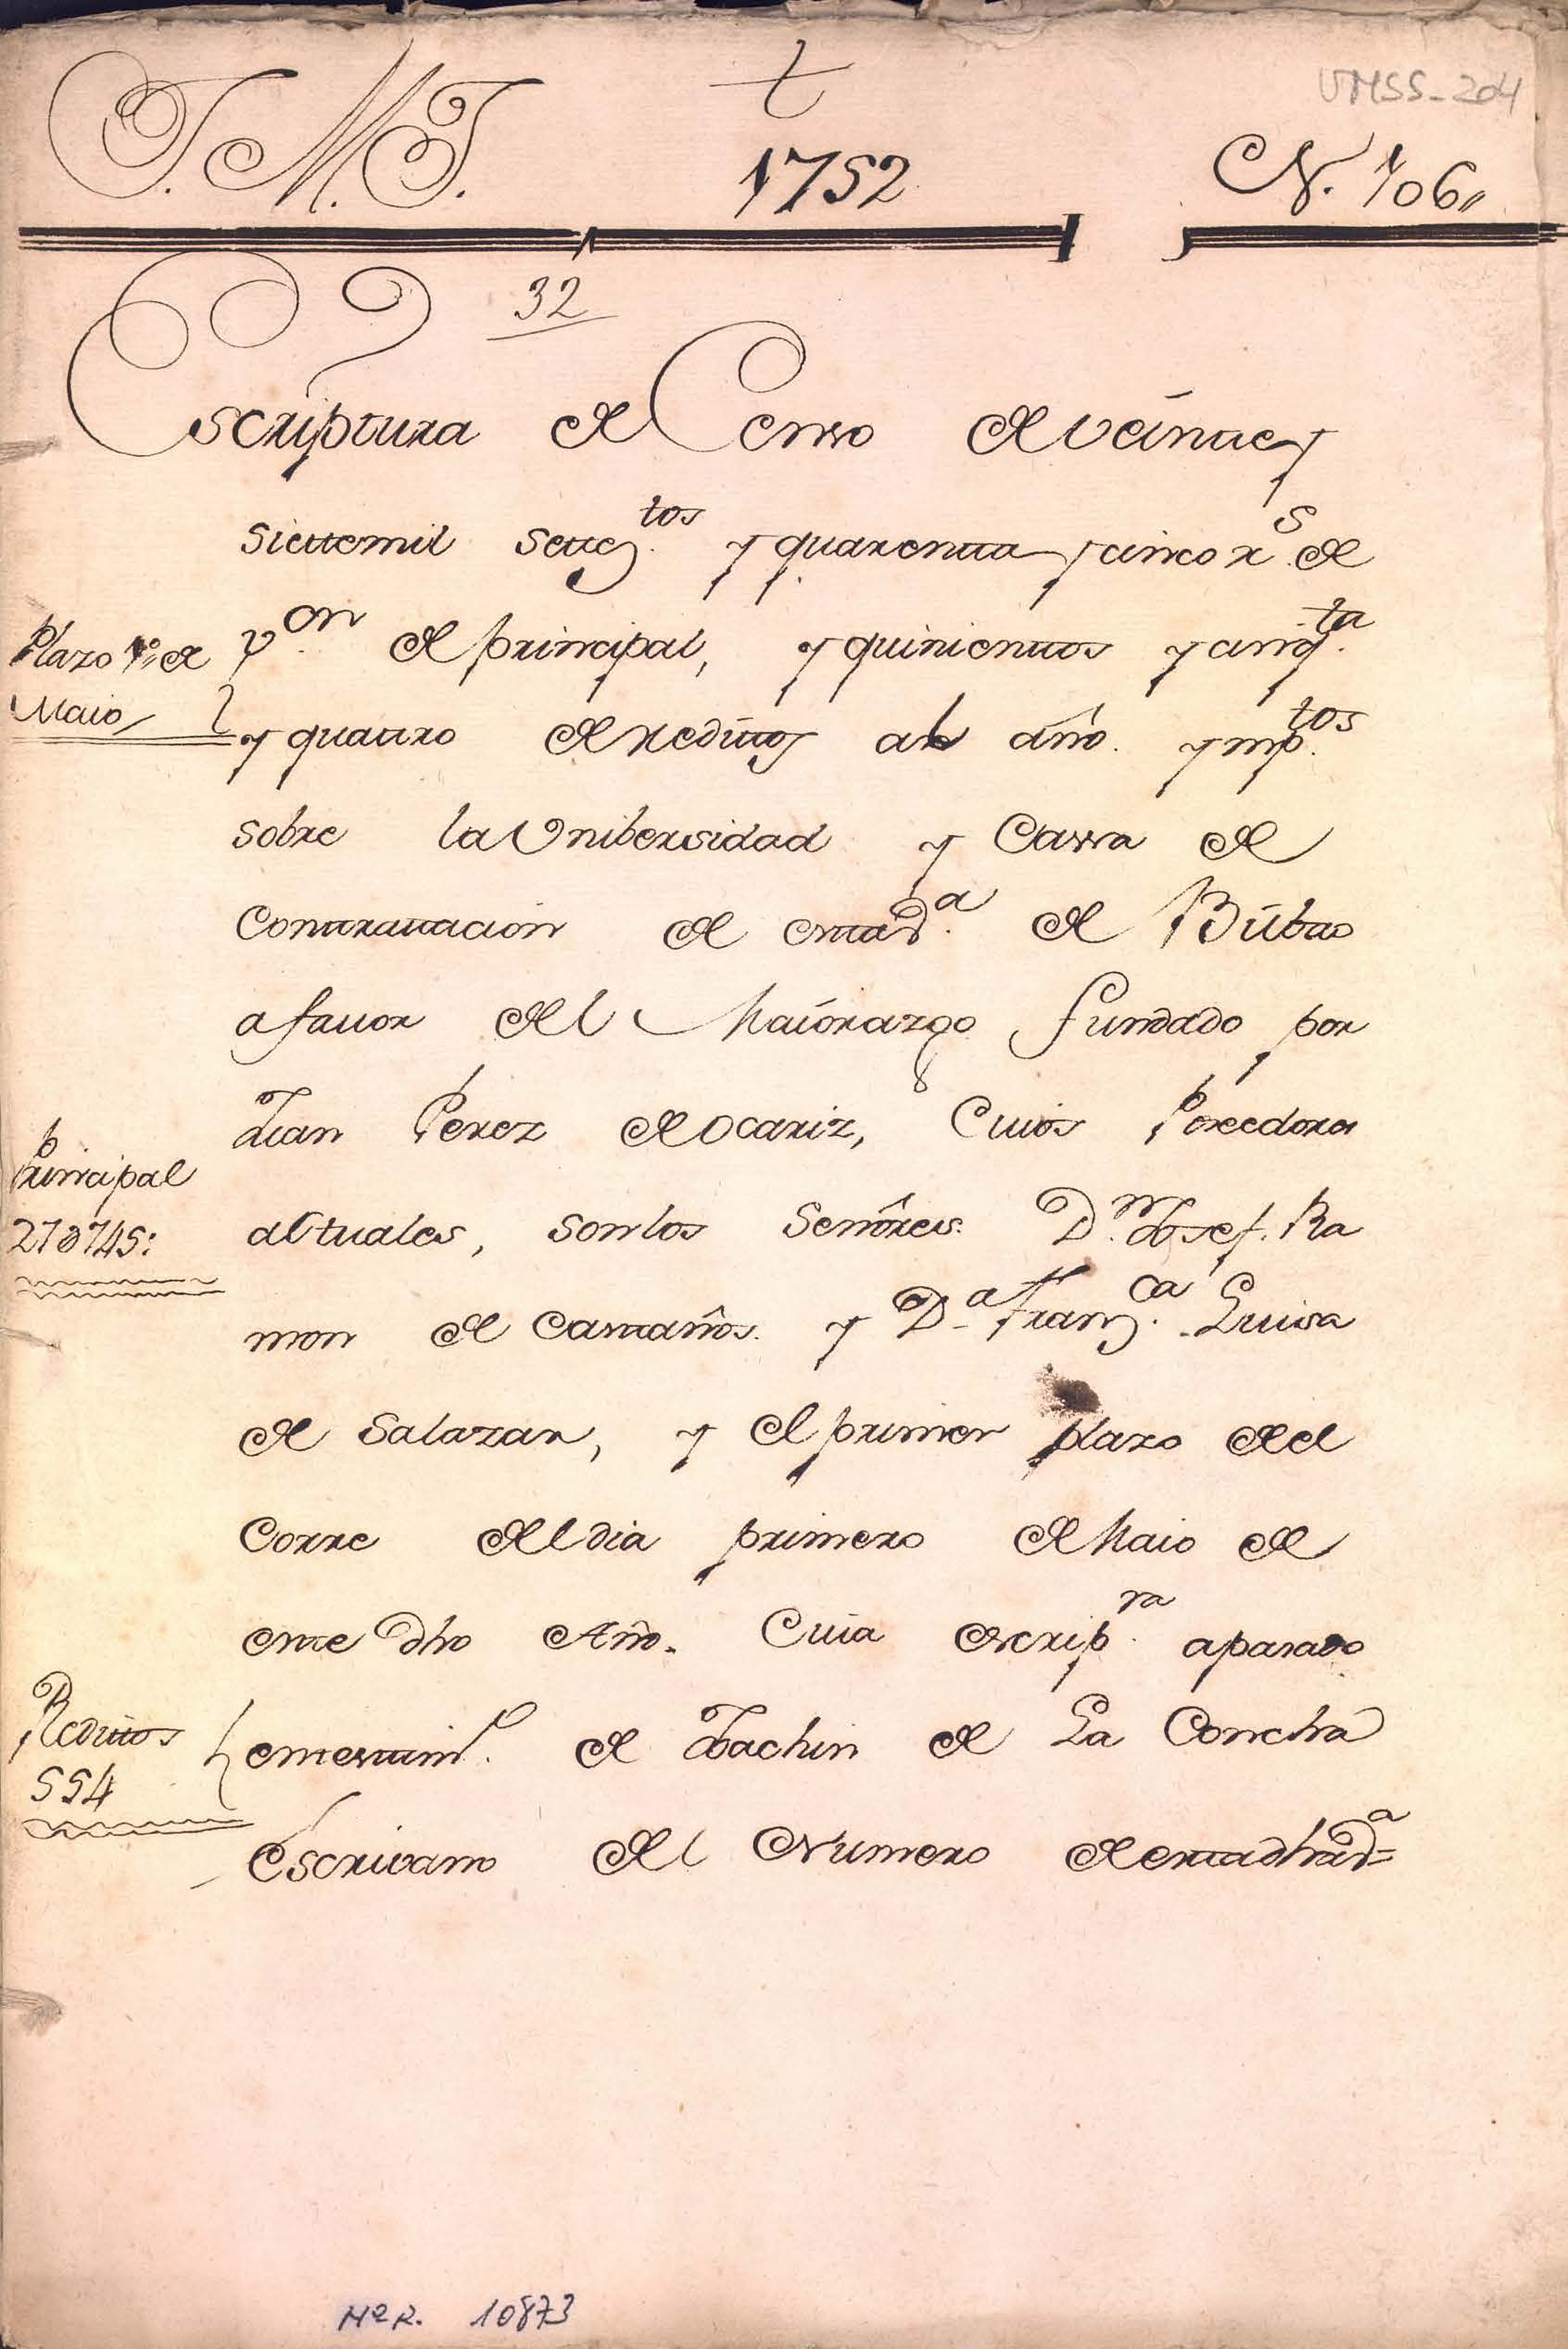 J. M. J.
t
1752
VMSS-204
N. 106,,
32
Escriptura de Censo de veinte y
siettemil settez.tos y quarenta y cinco r.s de
v.on de principal, y quinientos y cinq.ta
y quattro de redittos al año. ymp.tos
sobre la Vnibersidad y Cassa de
Conttrattacion de esta V.a de Bilbao
a favor del Maiorazgo fundado por
Juan Perez de Ocariz, Cuios Poseedores
actuales, son los señores D.n Josef. Ra
mon de Castaños y D.a Fran.ca Luisa
de Salazar, y el primer plazo de el
Corre del dia primero de Maio de
este dho Año. Cuia escrip.ra a pasado
en testim.o de Joachin de La Concha
Escrivano del Numero de esta dha V.a=
Plazo 1.o de
Maio
Principal
27U745:
Redittos
554
Nº R. 10873